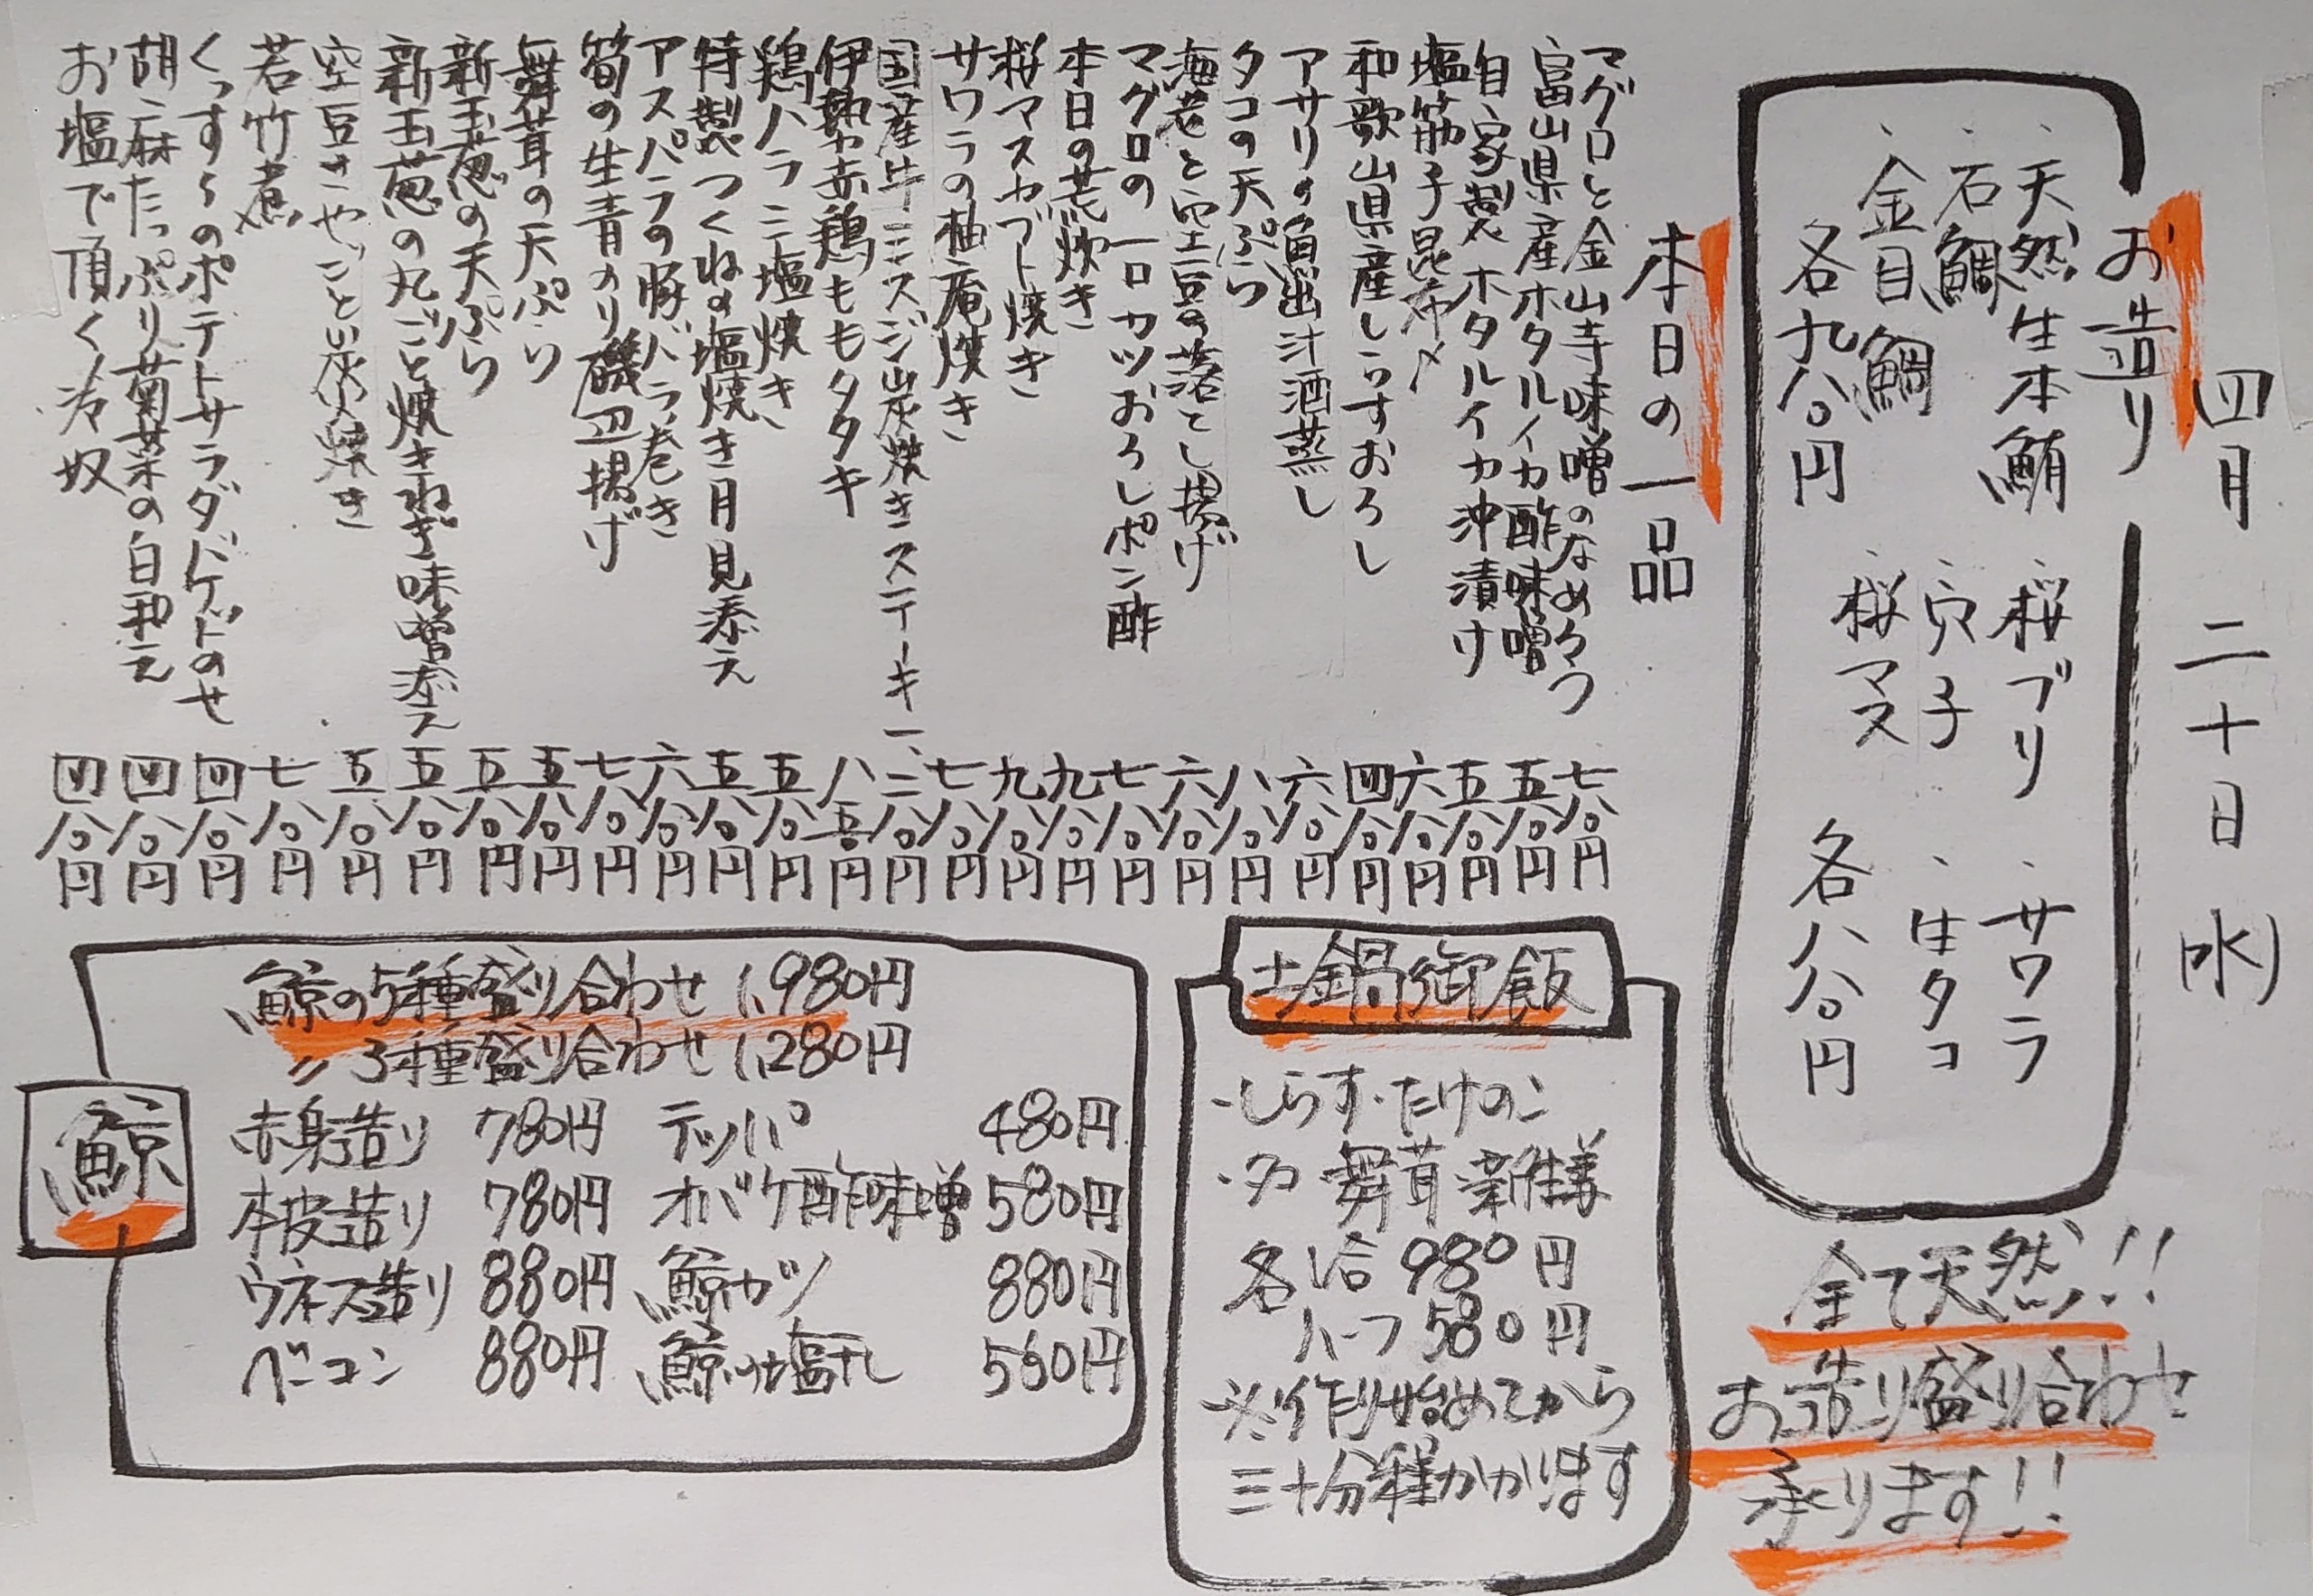 四月二十日(水)
お造り
・天然生本鮪 ・桜ブリ ・サワラ
・石鯛 ・穴子 ・生タコ
・金目鯛 ・桜マス
各九八〇円 各八八〇円
全て天然!!
お造り盛り合わせ
承ります!!
本日の一品
マグロと金山寺味噌のなめろう 七八〇円
富山県産ホタルイカ酢味噌 五八〇円
自家製ホタルイカ沖漬け 五八〇円
塩筋子昆布〆 六八〇円
和歌山県産しらすおろし 四八〇円
アサリの魚出汁酒蒸し 六八〇円
タコの天ぷら 八八〇円
海老と空豆の落とし揚げ 六八〇円
マグロの一口カツおろしポン酢 七八〇円
本日の荒炊き 九八〇円
桜マスカブト焼き 九八〇円
サワラの柚庵焼き 七八〇円
国産牛ミスジ炭焼きステーキ 一、二八〇円
伊勢赤鶏ももタタキ 八五〇円
鶏ハラミ塩焼き 五八〇円
特製つくねの塩焼き月見添え 五八〇円
アスパラの豚バラ巻き 六八〇円
筍の生青のり磯辺揚げ 七八〇円
舞茸の天ぷら 五八〇円
新玉葱の天ぷら 五八〇円
新玉葱の丸ごと焼きねぎ味噌添え 五八〇円
空豆さやごと炭焼き 五八〇円
若竹煮 七八〇円
くっすんのポテトサラダバゲットのせ 四八〇円
胡麻たっぷり菊菜の白和え 四八〇円
お塩で頂く冷奴 四八〇円
土鍋御飯
・しらす・たけのこ
・舞茸 新生姜
各1合 980円
ハーフ 580円
※作り始めてから
三十分程かかります
鯨
鯨の5種盛り合わせ 1,980円
〃 3種盛り合わせ 1,280円
赤身造り 780円 テッパ 480円
本皮造り 780円 オバケ酢味噌 580円
ウネス造り 880円 鯨カツ 880円
ベーコン 880円 鯨の塩干し 560円